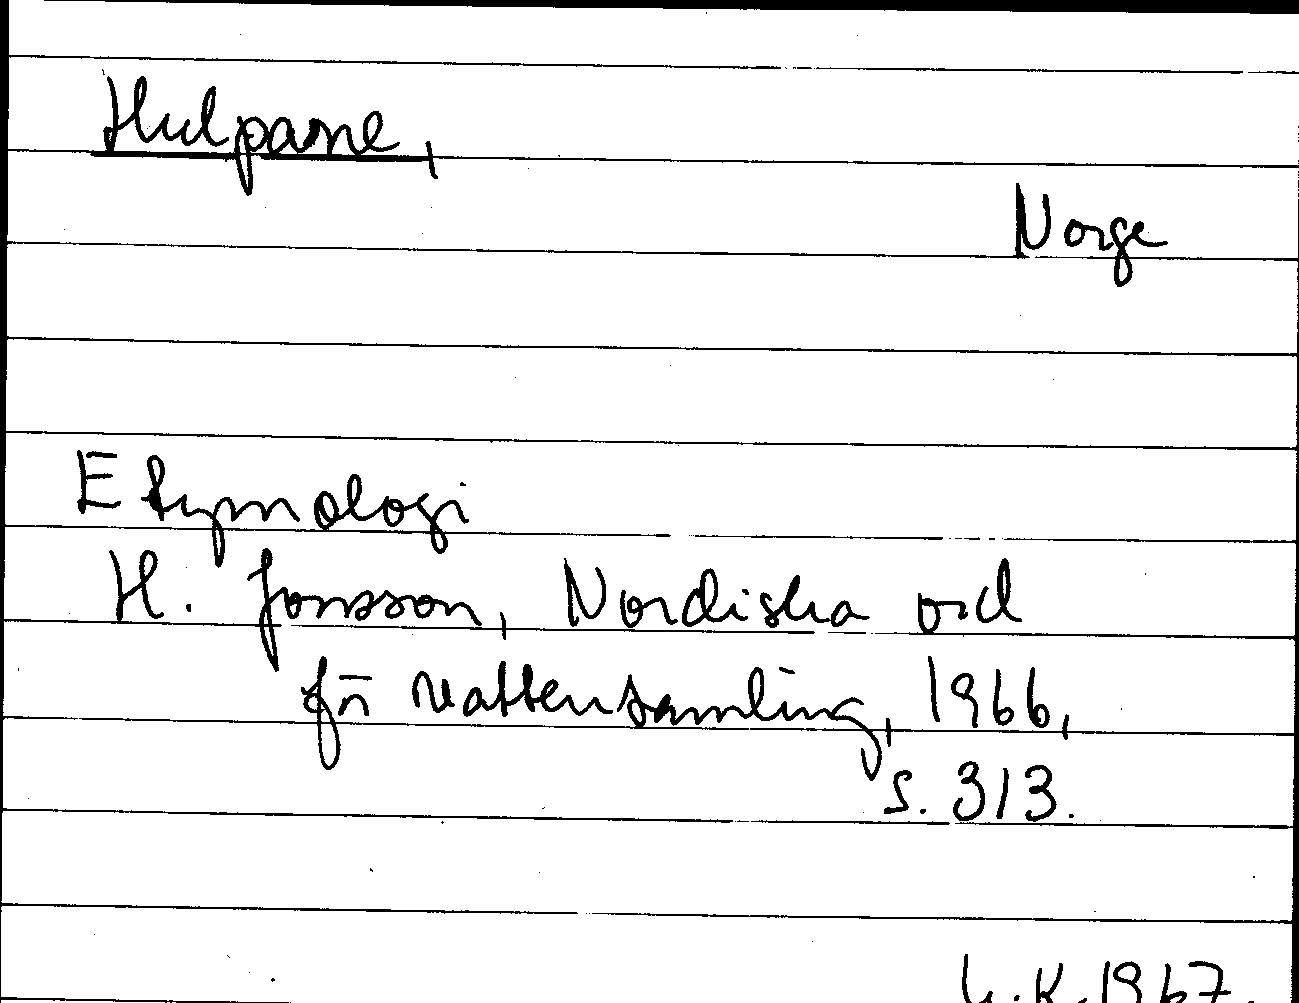 Hulpasne,
Norge
Etymologi
H. Jonsson, Nordiska ord
för vattensamling, 1966,
s. 313.
K. 1967.